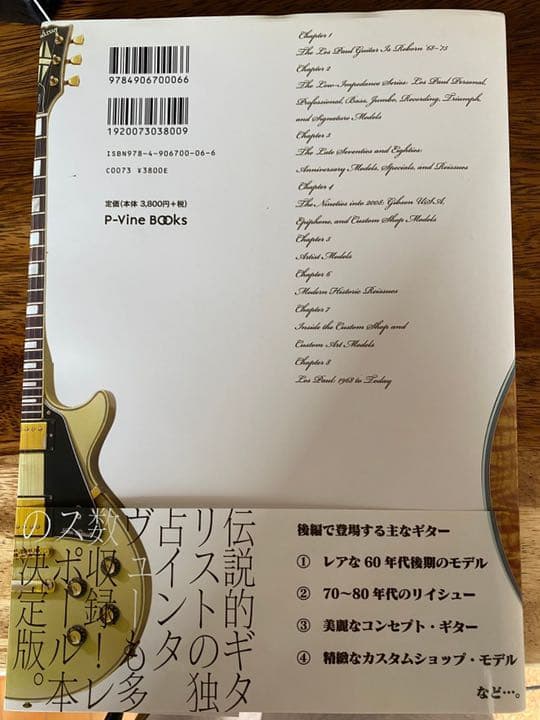 9784906700066
1920073038009
ISBN978-4-906700-06-6
C0073 ¥3800E
定価(本体 3,800円+税)
P-Vine BOOks
Chapter 1
The Les Paul Guitar Is Reborn '68-'75
Chapter 2
The Low-Impedance Series: Les Paul Personal,
Professional, Bass, Jumbo, Recording, Triumph,
and Signature Models
Chapter 3
The Late Seventies and Eighties:
Anniversary Models, Specials, and Reissues
Chapter 4
The Nineties into 2008: Gibson USA,
Epiphone, and Custom Shop Models
Chapter 5
Artist Models
Chapter 6
Modern Historic Reissues
Chapter 7
Inside the Custom Shop and
Custom Art Models
Chapter 8
Les Paul: 1968 to Today
伝説的ギタ
リストの独
占インタ
ヴューも多
数収録！レ
スポール本
の決定版。
後編で登場する主なギター
① レアな60年代後期のモデル
② 70〜80年代のリイシュー
③ 美麗なコンセプト・ギター
④ 精緻なカスタムショップ・モデル
など…。